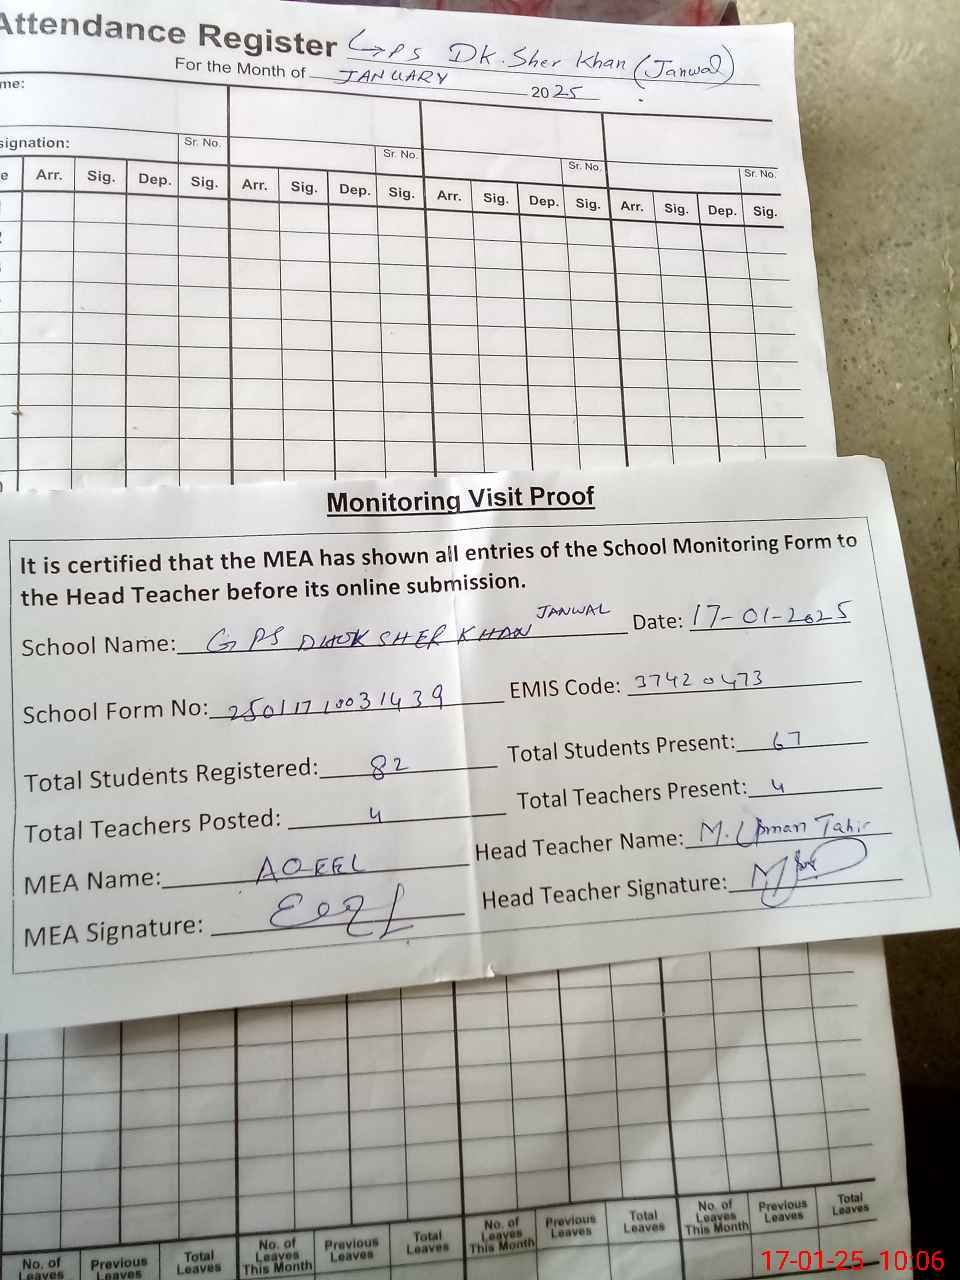 Attendance Register GPS DK. Sher Khan (Janwal)
For the Month of JANUARY 2025
me:
signation: Sr. No. Sr. No. Sr. No. Sr. No.
e Arr. Sig. Dep. Sig. Arr. Sig. Dep. Sig. Arr. Sig. Dep. Sig. Arr. Sig. Dep. Sig.
Monitoring Visit Proof
It is certified that the MEA has shown all entries of the School Monitoring Form to
the Head Teacher before its online submission.
School Name: GPS DHOK SHER KHAN JANWAL Date: 17-01-2025
School Form No: 25011710031439 EMIS Code: 37420473
Total Students Registered: 82 Total Students Present: 67
Total Teachers Posted: 4 Total Teachers Present: 4
MEA Name: AQEEL Head Teacher Name: M. Usman Tahir
MEA Signature: Head Teacher Signature:
No. of Leaves Previous Leaves Total Leaves No. of Leaves This Month Previous Leaves Total Leaves No. of Leaves This Month Previous Leaves Total Leaves No. of Leaves This Month Previous Leaves Total Leaves
17-01-25 10:06